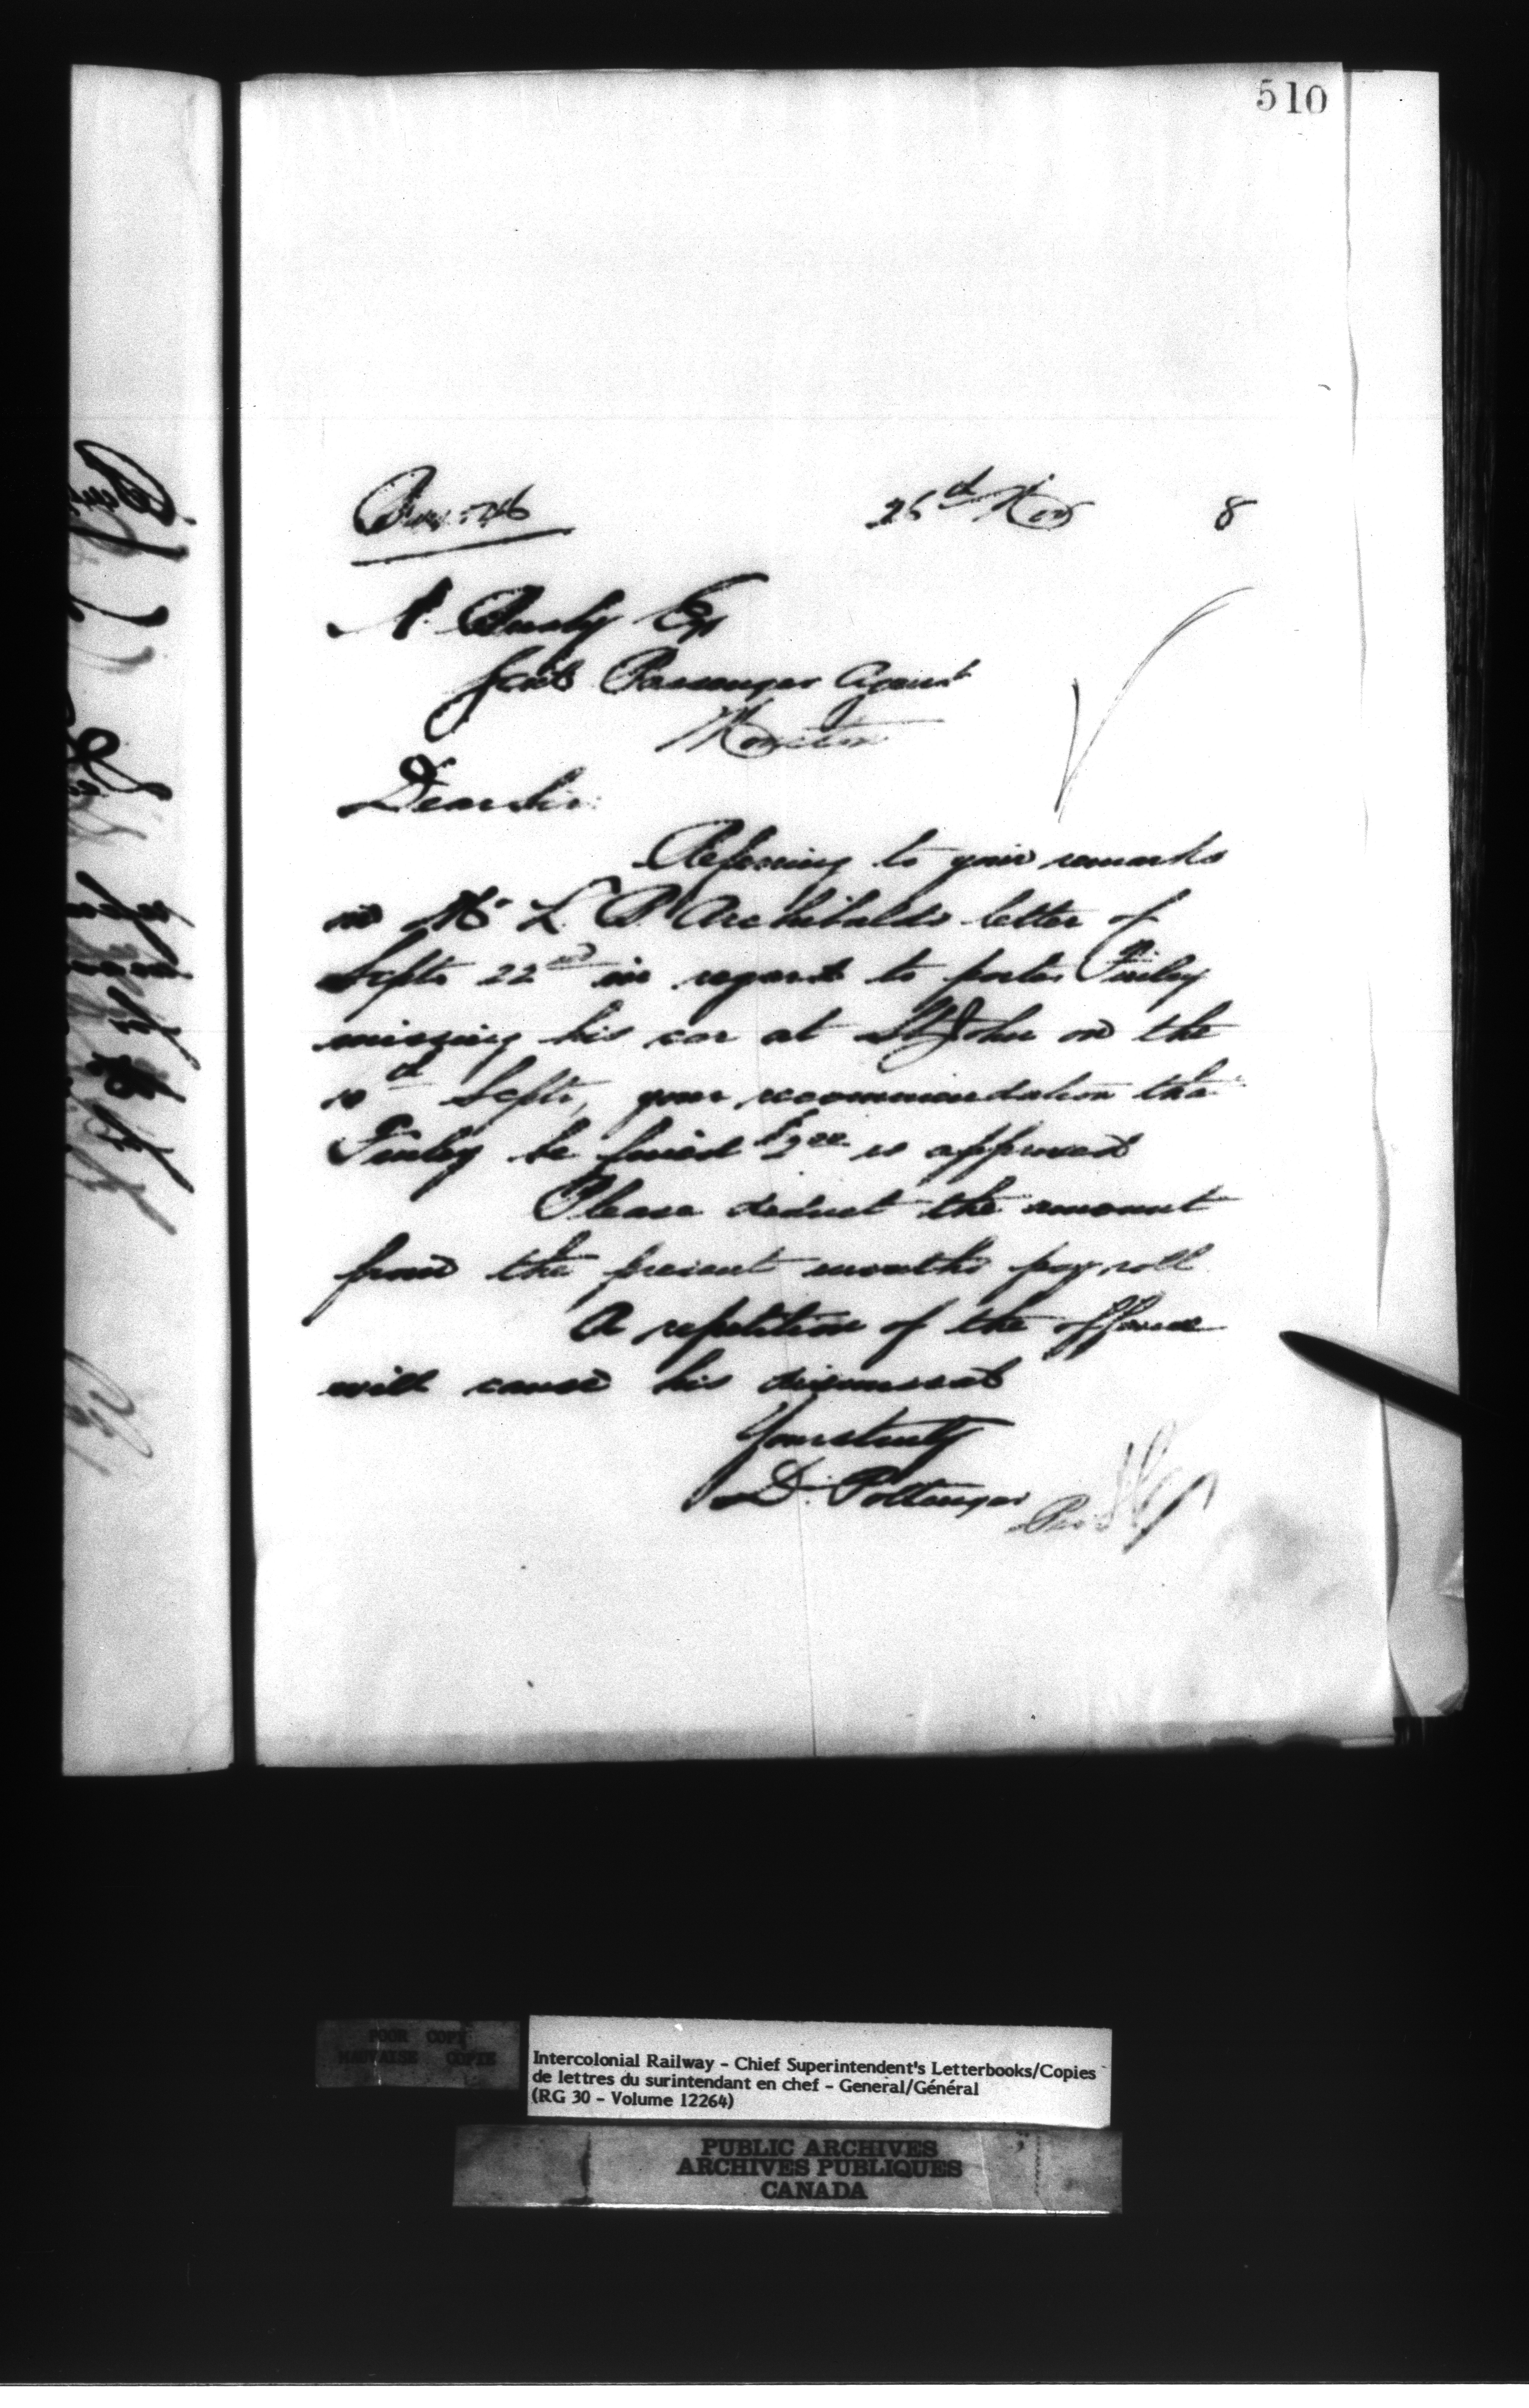 510
26th Nov 8
A. Busby Esq
Genl Passenger Agent
Moncton
Dear Sir:
Referring to your remarks
on Mr L. P. Archibald's letter of
Septr 22nd in regard to porter Finley
missing his car at St John on the
10th Septr, your recommendation tha
Finley be fined $2.00 is approved
Please deduct the amount
from the present months pay roll
A repetition of the offence
will cause his dismissal
Yours truly
D. Pottinger
Per
POOR COPY
MAUVAISE COPIE
Intercolonial Railway - Chief Superintendent's Letterbooks/Copies
de lettres du surintendant en chef - General/Général
(RG 30 - Volume 12264)
PUBLIC ARCHIVES
ARCHIVES PUBLIQUES
CANADA